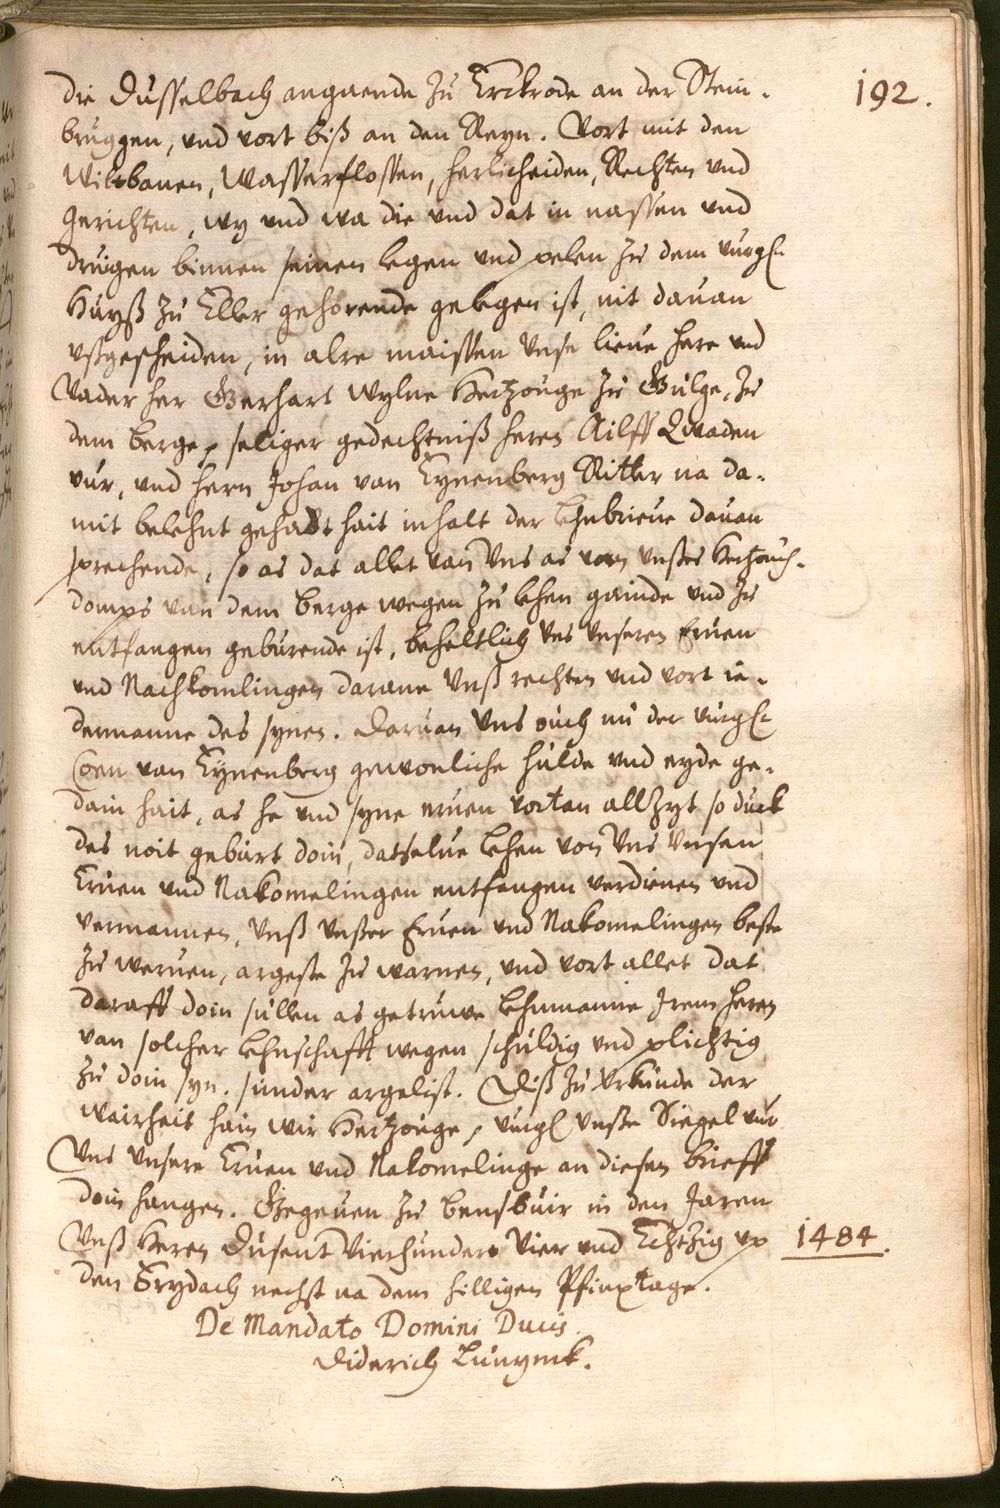 192.
die Dusselbach angaende zu Erckrode an der Stein-
bruggen, und vort biß an den Reyn. Vort mit den
Wiltbanen, Wasserflossen, herlicheiden, Rechten und
gerichten, wy und wa die und dat in nassen und
druigen binnen seinen legen und pelen zu dem vurg.
Huyß zu Eller gehorende gelegen ist, nit davan
ußgescheiden, in alre maissen Unse lieve here und
Vader her Gerhart wylne Hertzouge zu Gulge, zu
dem Berge, p seliger gedechtniß heren Ailff Quaden
vur, und hern Johan van Eynenberg Ritter na da-
mit belehnt gehadt hait inhalt der Lehnbrieve davan
sprechende, so as dat allet van Uns as van unsers Hertzouch-
domps van dem Berge wegen zu lehen gainde und zu
entfangen geburende ist, beheltlich Uns Unseren Erven
und Nachkomlingen darane Unß rechten und vort ie-
dermanne des synen. Darvan Uns ouch nu der vurg.
Coen van Eynenberg gewonliche hulde und eyde ge-
dain hait, as he und syne erven vortan allzyt so duck
des noit geburt doin, datselve Lehen von Uns Unsen
Erven und Nakomelingen entfangen verdienen und
vermannen, Unß Unßer Erven und Nakomelingen beste
zu werven, argeste zu warnen, und vort allet dat
daraff doin sullen as getruwe Lehnmanne Irem heren
van solcher Lehnschafft wegen schuldig und plichtig
zu doin syn. sunder argelist. Diß zu Urkunde der
wairheit hain wir Hertzouge, p vurg. Unße Siegel vur
Uns Unsere Erven und Nakomelinge an diesen brieff
doin hangen. Gegeven zu Bensbuir in den Jaren
Unß Heren Dusent Vierhundert Vier und Echtzig up
1484.
den Frydach nechst na dem hilligen Pfinxtage.
De Mandato Domini Ducis
Diderich Lunynck.